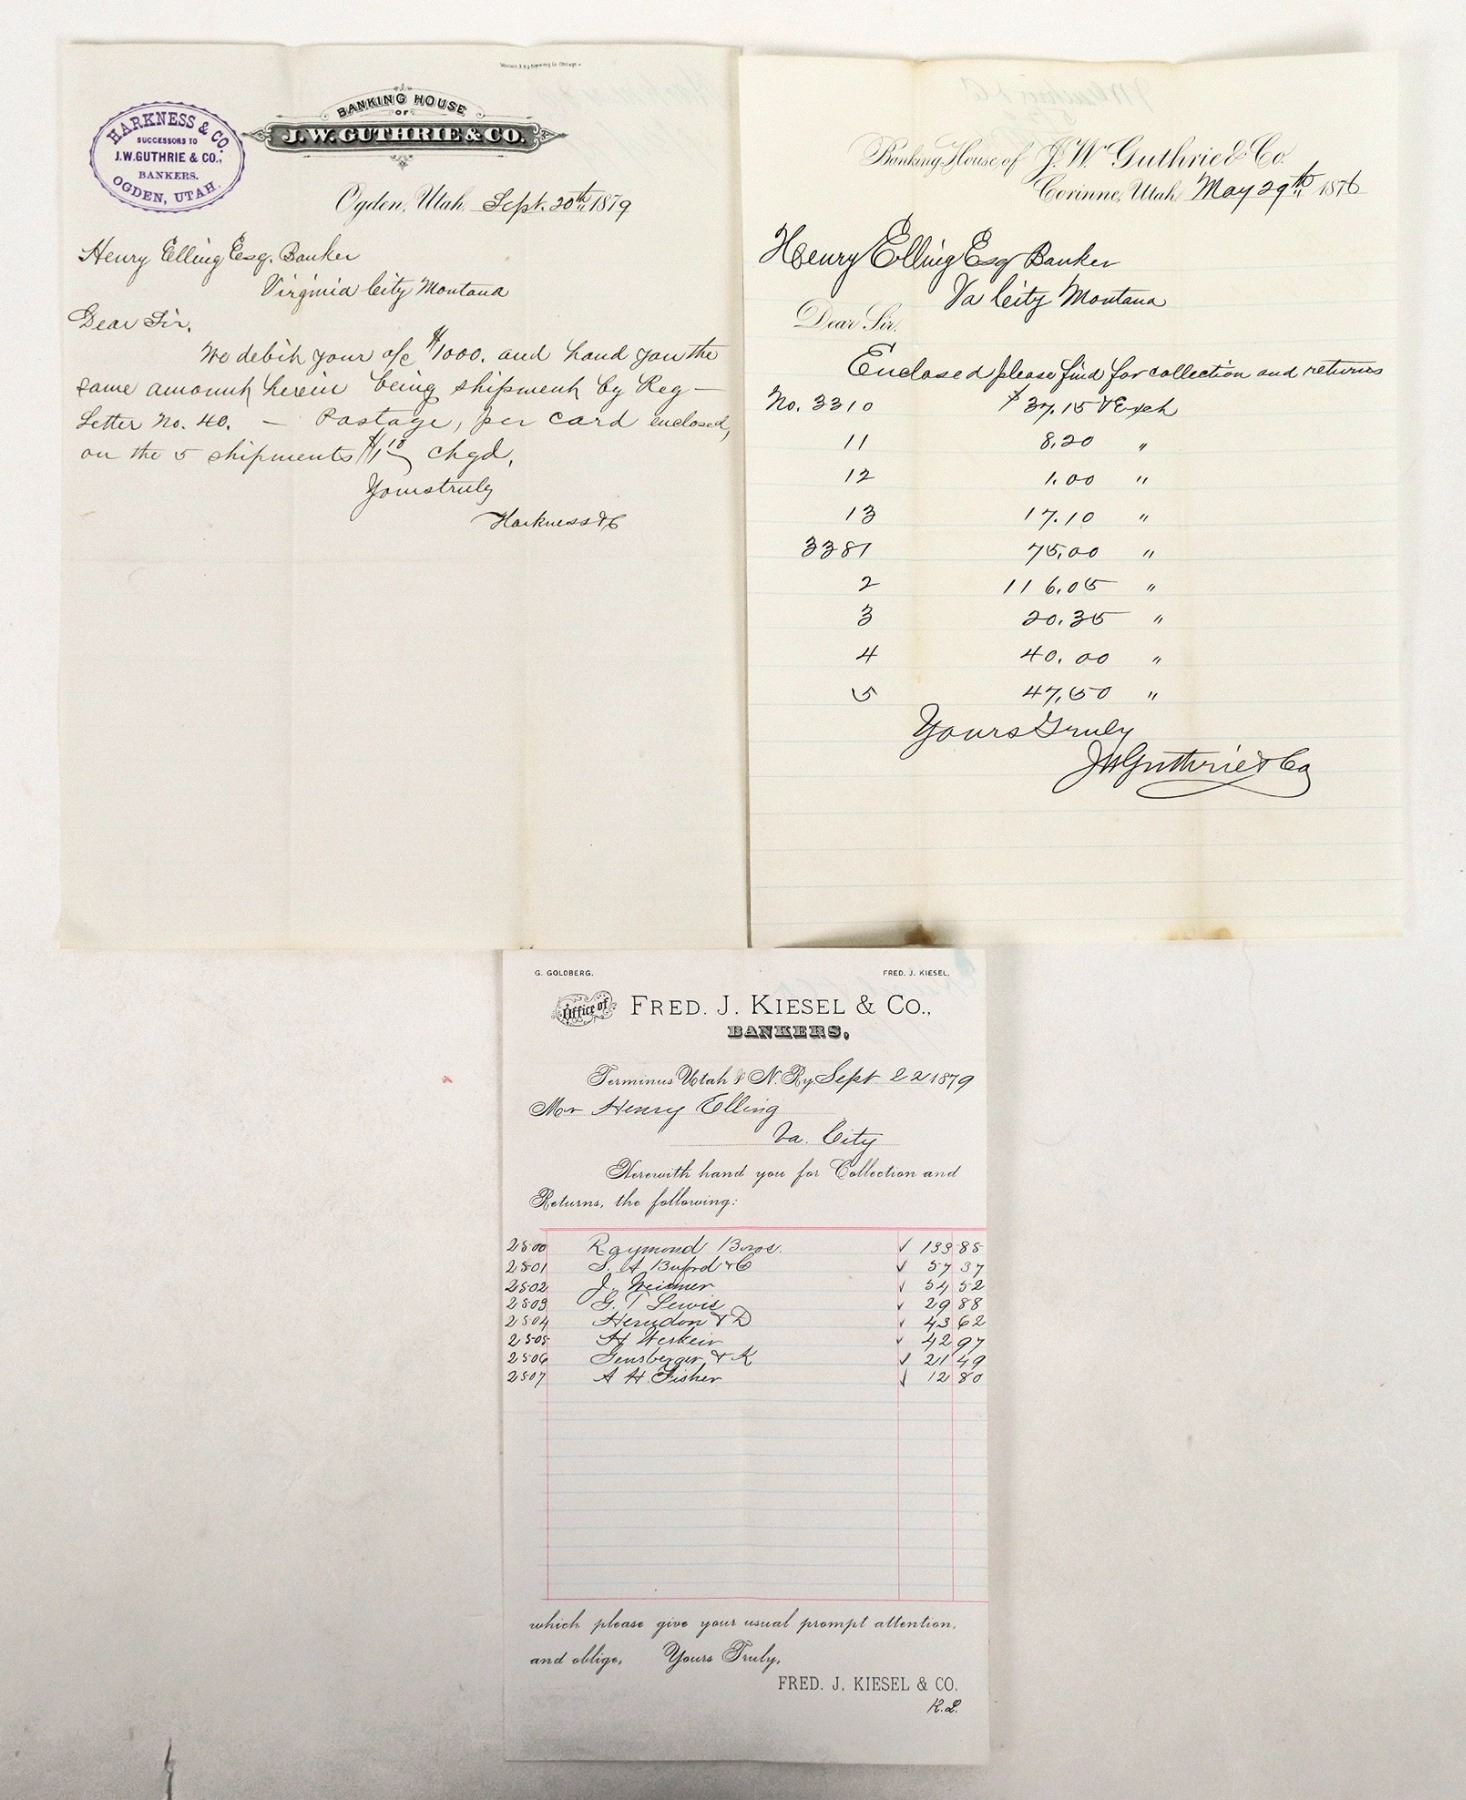 HARKNESS & CO.
SUCCESSORS TO
J.W. GUTHRIE & CO.,
BANKERS.
OGDEN, UTAH.
BANKING HOUSE
OF
J.W. GUTHRIE & CO.
Ogden, Utah, Sept. 20th 1879
Henry Elling Esq. Banker
Virginia City Montana
Dear Sir,
We debit your a/c $1000. and hand you the
same amount herein being shipment by Reg—
Letter No. 40. — Postage, per card enclosed,
on the 5 shipments $1.10 chgd.
Yours truly
Harkness & C
Banking House of J.W. Guthrie & Co.
Corinne, Utah, May 29th 1876
Henry Elling Esq Banker
Va City Montana
Dear Sir,
Enclosed please find for collection and returns
No. 3310 $37.15 & Exch
11 8.20 "
12 1.00 "
13 17.10 "
3381 75.00 "
2 116.05 "
3 20.35 "
4 40.00 "
5 47.50 "
Yours Truly
JW Guthrie & Co
G. GOLDBERG. FRED. J. KIESEL.
Office of FRED. J. KIESEL & CO.,
BANKERS,
Terminus Utah & N. Ry Sept 22 1879
Mr Henry Elling
Va. City
Herewith hand you for Collection and
Returns, the following:
2500 Raymond Bros. √ 133 85
2501 S. H Buford & C √ 57 37
2502 J. Weimer √ 54 52
2503 G. T Lewis √ 29 88
2504 Herndon & D √ 43 62
2505 H √ 42 97
2506 & K √ 21 49
2507 A H Fisher √ 12 80
which please give your usual prompt attention,
and oblige, Yours Truly,
FRED. J. KIESEL & CO.
K.L.